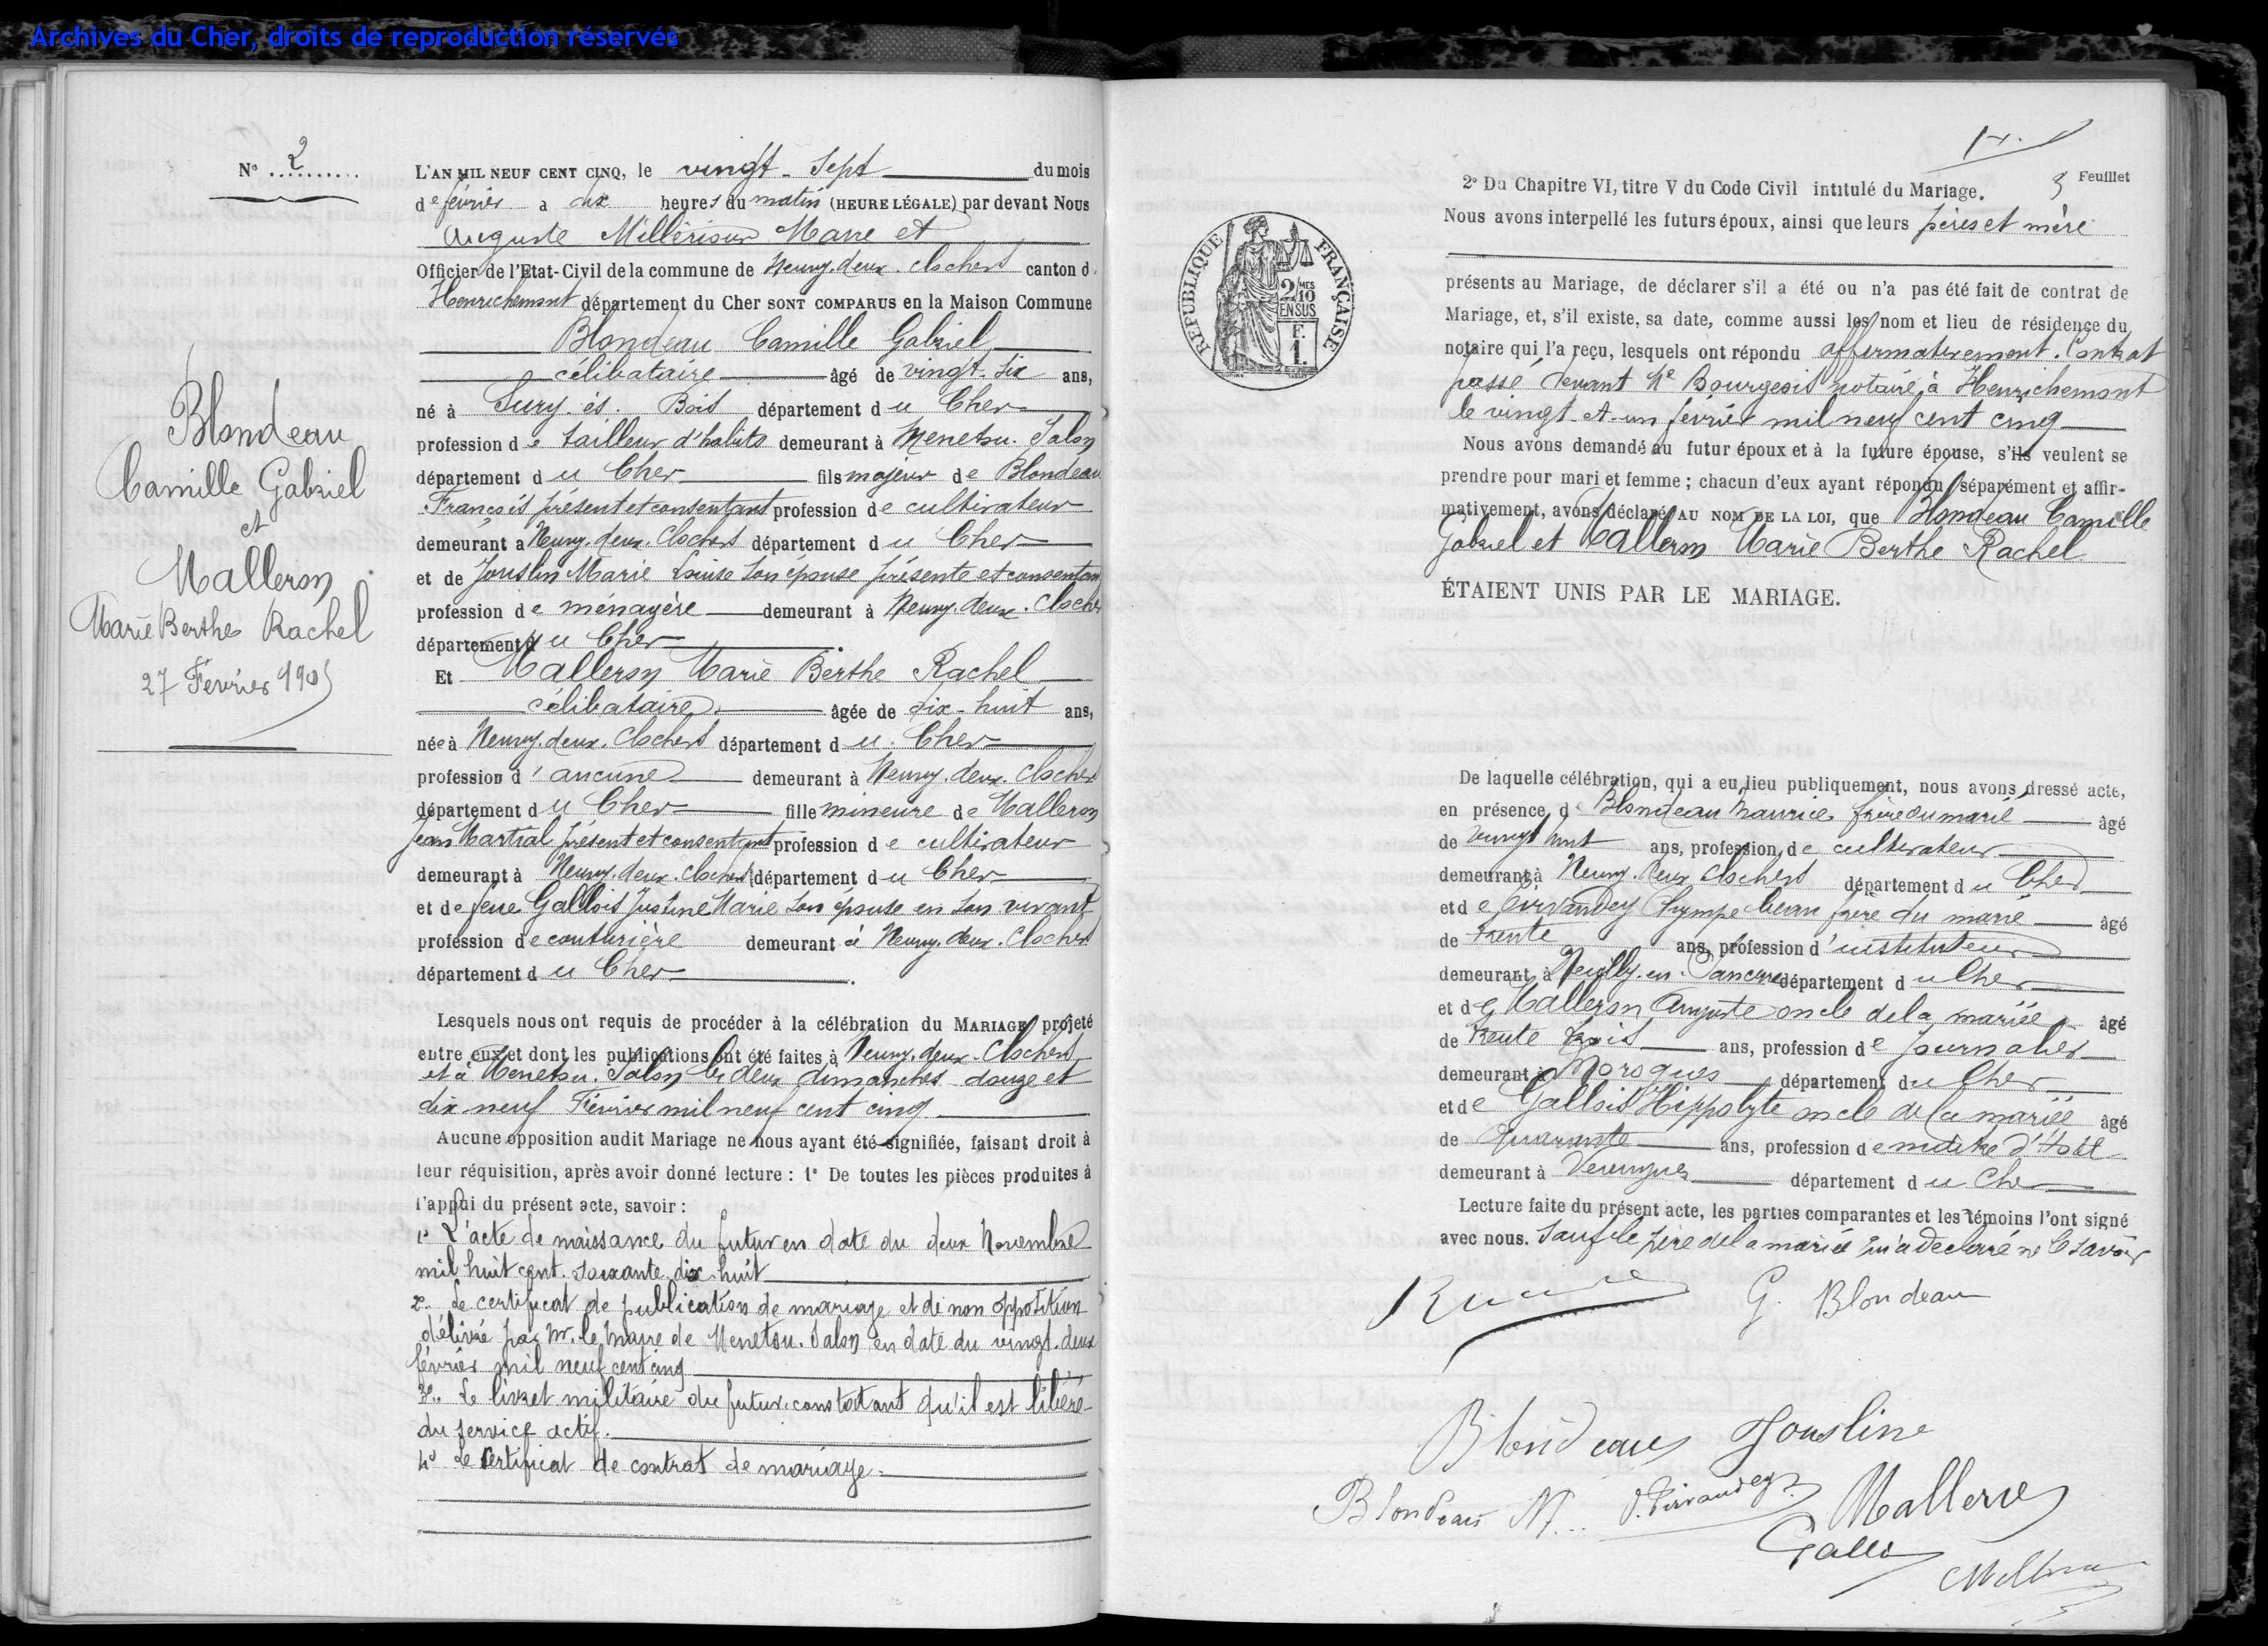 Archives du Cher, droits de reproduction réservés
N° 2
Blondeau
Camille Gabriel
et
Malleron
Marie Berthe Rachel
27 Février 1905
L'AN MIL NEUF CENT CINQ, le vingt-sept du mois
de février a dix heures du matin (HEURE LÉGALE) par devant Nous
Auguste Millérioux Maire et
Officier de l'Etat-Civil de la commune de Neuvy-deux-Clochers canton d'
Henrichemont département du Cher SONT COMPARUS en la Maison Commune
Blondeau Camille Gabriel
célibataire âgé de vingt-six ans,
né à Sury-ès-Bois département du Cher
profession de tailleur d'habits demeurant à Menetou-Salon
département du Cher fils majeur de Blondeau
François présent et consentant profession de cultivateur
demeurant a Neuvy-deux-Clochers département du Cher
et de Jouslin Marie Louise son épouse présente et consentan
profession de ménagère demeurant à Neuvy-deux-Clochers
département du Cher
Et Malleron Marie Berthe Rachel
célibataire âgée de dix-huit ans,
née à Neuvy-deux-Clochers département du Cher
profession d'aucune demeurant à Neuvy-deux-Clochers
département du Cher fille mineure de Malleron
Jean Martial présent et consentant profession de cultivateur
demeurant à Neuvy-deux-Clochers département du Cher
et de feue Gallois Justine Marie son épouse en son vivant
profession de couturière demeurant à Neuvy-deux-Clochers
département du Cher
Lesquels nous ont requis de procéder à la célébration du MARIAGE projeté
entre eux et dont les publications ont été faites à Neuvy-deux-Clochers
et à Menetou-Salon les deux dimanches douze et
dix neuf Février mil neuf cent cinq
Aucune opposition audit Mariage ne nous ayant été signifiée, faisant droit à
leur réquisition, après avoir donné lecture : 1° De toutes les pièces produites à
l'appui du présent acte, savoir :
1° L'acte de naissance du futur en date du deux Novembre
mil huit cent soixante dix-huit
2° Le certificat de publication de mariage et de non opposition
délivré par Mr. le Maire de Menetou-Salon en date du vingt-deux
février mil neuf cent cinq
3° Le livret militaire du futur constatant qu'il est libéré
du service actif.
4° Le certificat de contrat de mariage.
3 Feuillet
2° Du Chapitre VI, titre V du Code Civil intitulé du Mariage.
Nous avons interpellé les futurs époux, ainsi que leurs pères et mère
RÉPUBLIQUE FRANÇAISE
2/10 MES
EN SUS
F.
1.
présents au Mariage, de déclarer s'il a été ou n'a pas été fait de contrat de
Mariage, et, s'il existe, sa date, comme aussi les nom et lieu de résidence du
notaire qui l'a reçu, lesquels ont répondu affirmativement. Contrat
passé devant Me Bourgeois notaire à Henrichemont
le vingt-et-un février mil neuf cent cinq
Nous avons demandé au futur époux et à la future épouse, s'ils veulent se
prendre pour mari et femme ; chacun d'eux ayant répondu séparément et affir-
mativement, avons déclaré AU NOM DE LA LOI, que Blondeau Camille
Gabriel et Malleron Marie Berthe Rachel
ÉTAIENT UNIS PAR LE MARIAGE.
De laquelle célébration, qui a eu lieu publiquement, nous avons dressé acte,
en présence de Blondeau Maurice frère du marié âgé
de vingt huit ans, profession de cultivateur
demeurant à Neuvy-deux-Clochers département du Cher
et de Pirvaudey Olympe beau frère du marié âgé
de trente ans, profession d'instituteur
demeurant à Neuilly-en-Sancerre département du Cher
et de Malleron Auguste oncle de la mariée âgé
de trente trois ans, profession de journalier
demeurant à Morogues département du Cher
et de Gallois Hippolyte oncle de la mariée âgé
de quarante ans, profession de maître d'Hôtel
demeurant à département du Cher
Lecture faite du présent acte, les parties comparantes et les témoins l'ont signé
avec nous. Sauf le père de la mariée qui a déclaré ne le savoir
G. Blondeau
Blondeau Jousline
Blondeau M. O. Pirvaudey Malleron
Gallois